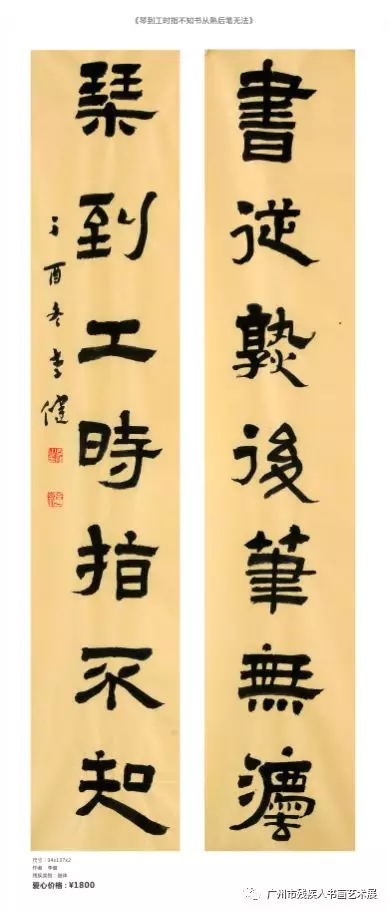 《琴到工时指不知书从熟后笔无法》
書從孰後筆無灋
琹到工時指不知
丁酉冬李健
尺寸:34x137x2
作者:李健
残疾类别:肢体
爱心价格:¥1800
广州市残疾人书画艺术展